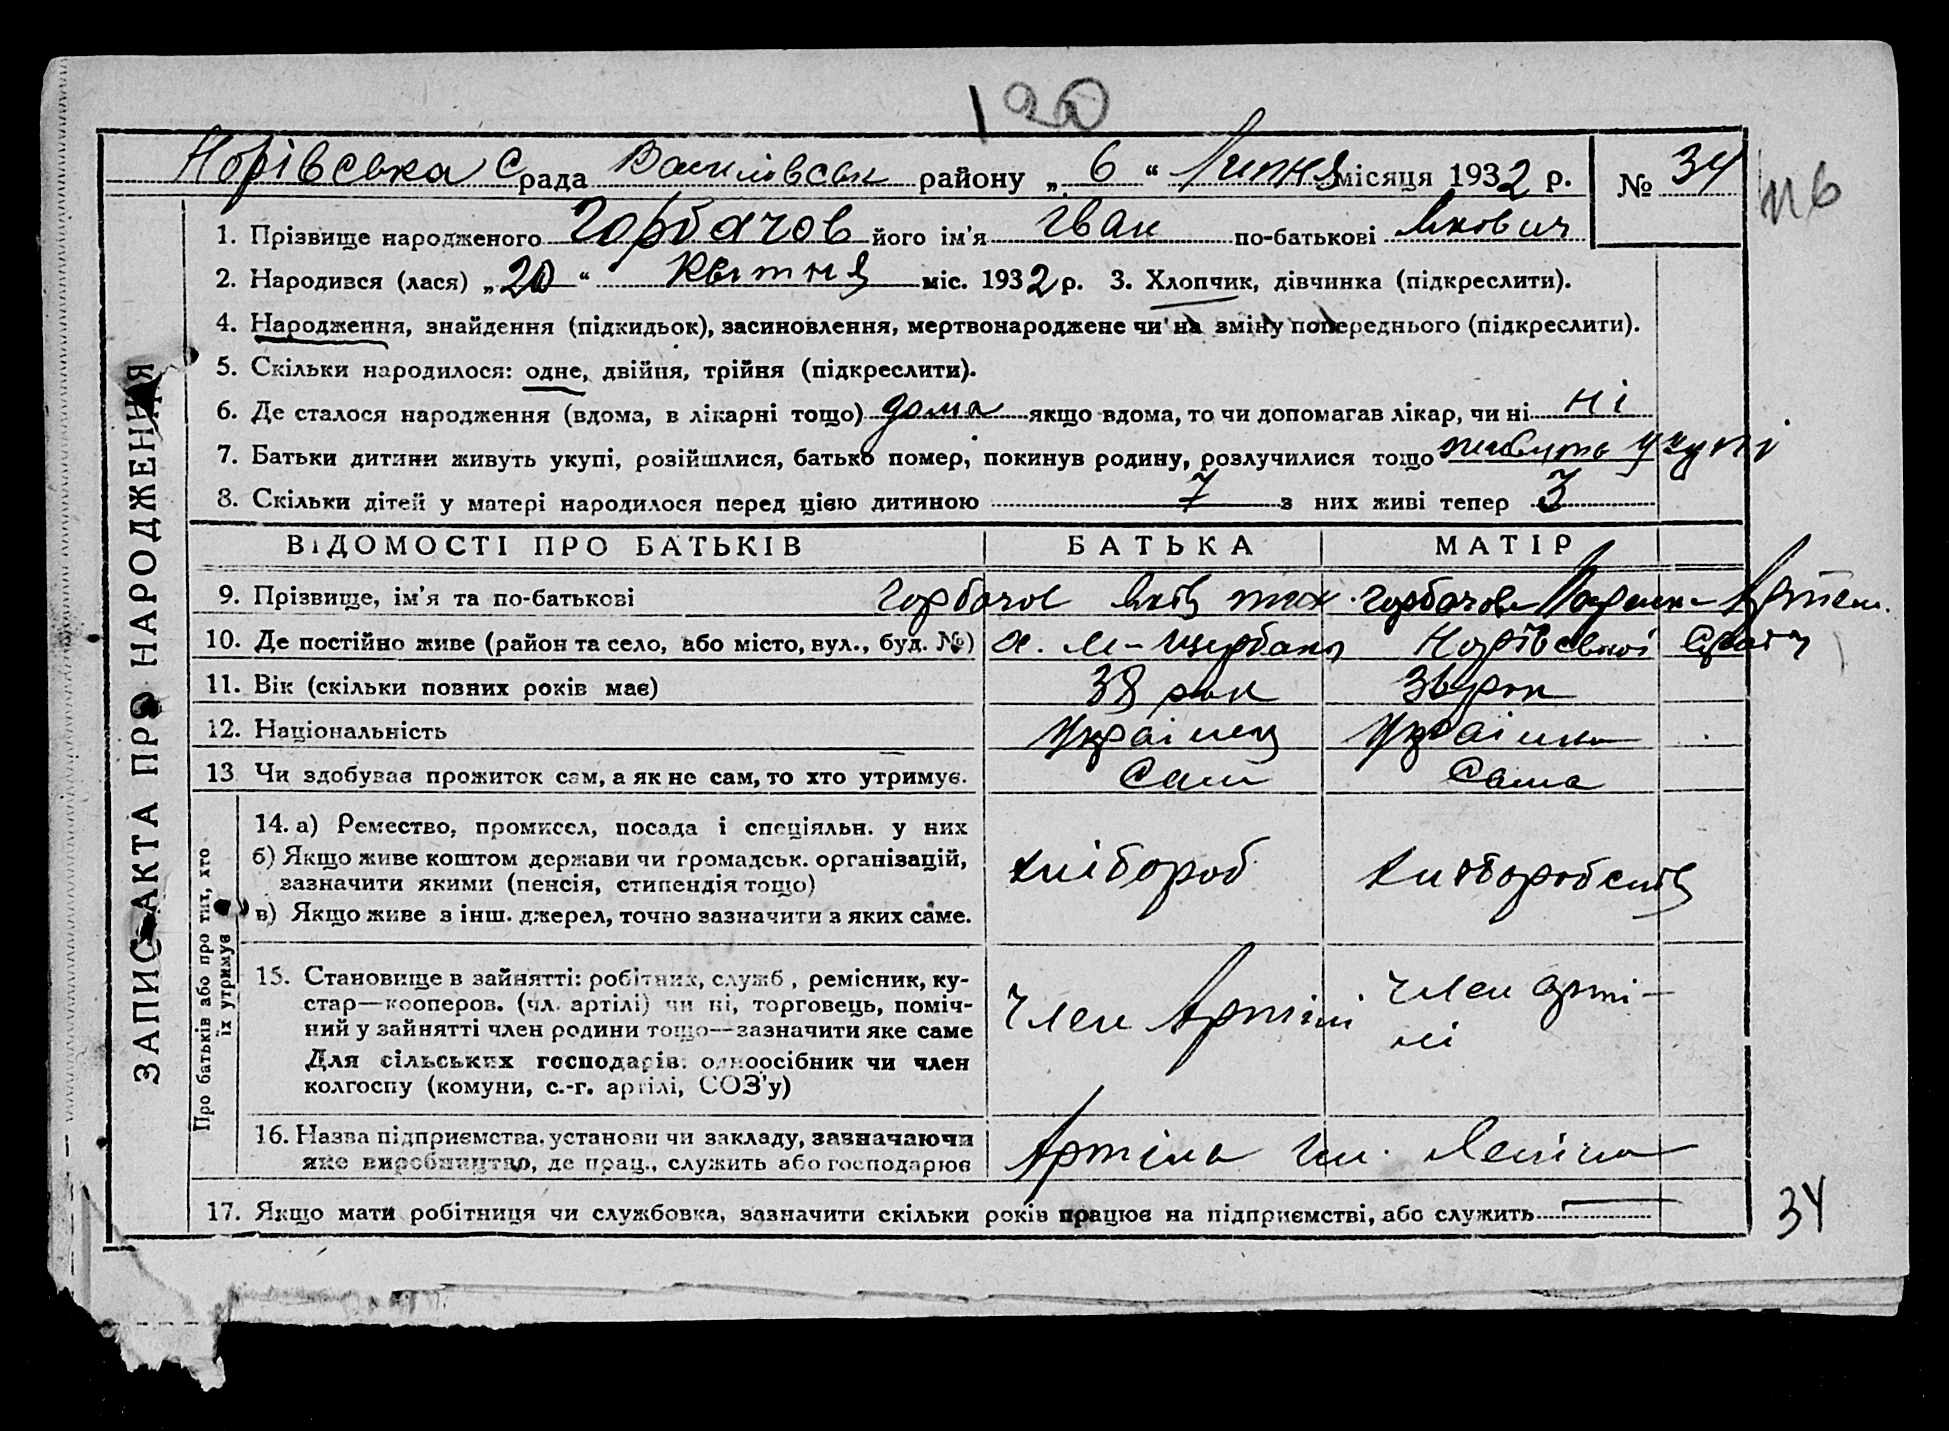 120
Норівська Срада Василівськ району „ 6 “ Липня місяця 1932 р. № 34
116
1. Прізвище народженого Горбачов його ім'я Іван по-батькові Якович
2. Народився (лася) „ 20 “ Квітня міс. 1932 р. 3. Хлопчик, дівчинка (підкреслити).
4. Народження, знайдення (підкидьок), засиновлення, мертвонароджене чи на зміну попереднього (підкреслити).
5. Скільки народилося: одне, двійня, трійня (підкреслити).
6. Де сталося народження (вдома, в лікарні тощо) дома якщо вдома, то чи допомагав лікар, чи ні ні
7. Батьки дитини живуть укупі, розійшлися, батько помер, покинув родину, розлучилися тощо живуть укупі
8. Скільки дітей у матері народилося перед цією дитиною 7 з них живі тепер 3
ЗАПИС АКТА ПРО НАРОДЖЕННЯ
ВІДОМОСТІ ПРО БАТЬКІВ БАТЬКА МАТІР
9. Прізвище, ім'я та по-батькові Горбачов Яків тих. Горбачова Артем.
10. Де постійно живе (район та село, або місто, вул., буд. №) х. м-Щербани Норівської Сради
11. Вік (скільки повних років має) 38 рок 36 рок
12. Національність Українец Українка
13 Чи здобував прожиток сам, а як не сам, то хто утримує. Сам Сама
Про батьків або про тих, хто
їх утримує
14. а) Ремество, промисел, посада і спеціяльн. у них
б) Якщо живе коштом держави чи громадськ. організацій,
зазначити якими (пенсія, стипендія тощо)
в) Якщо живе з інш. джерел, точно зазначити з яких саме.
хлібороб хліборобств
15. Становище в зайнятті: робітник, служб., ремісник, ку-
стар—кооперов. (чл. артілі) чи ні, торговець, поміч-
ний у зайнятті член родини тощо—зазначити яке саме
Для сільських господарів: одноосібник чи член
колгоспу (комуни, с.-г. артілі, СОЗ'у)
Член Артілі член арті-
лі
16. Назва підприємства, установи чи закладу, зазначаючи
яке виробництво, де прац., служить або господарює
Артіль Ім. Леніна
17. Якщо мати робітниця чи службовка, зазначити скільки років працює на підприємстві, або служить —
34